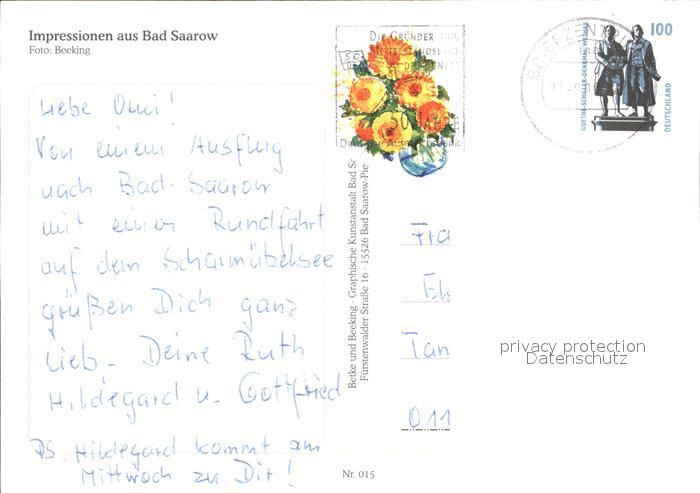 Impressionen aus Bad Saarow
Foto: Beeking
Liebe Omi!
Von einem Ausflug
nach Bad-Saarow
mit einer Rundfahrt
auf dem Scharmützelsee
grüßen Dich ganz
lieb - Deine Ruth
Hildegard u. Gottfried
PS. Hildegard kommt am
Mittwoch zu Dir!
Betke und Beeking · Graphische Kunstanstalt Bad S
Fürstenwalder Straße 16 · 15526 Bad Saarow-Pie
Nr. 015
DIE GRÜNDER- UND
50 JAHRE
BRIEFZENTRUM
GOETHE-SCHILLER-DENKMAL WEIMAR
100
DEUTSCHLAND
Fra
Ek
Tan
011
privacy protection
Datenschutz